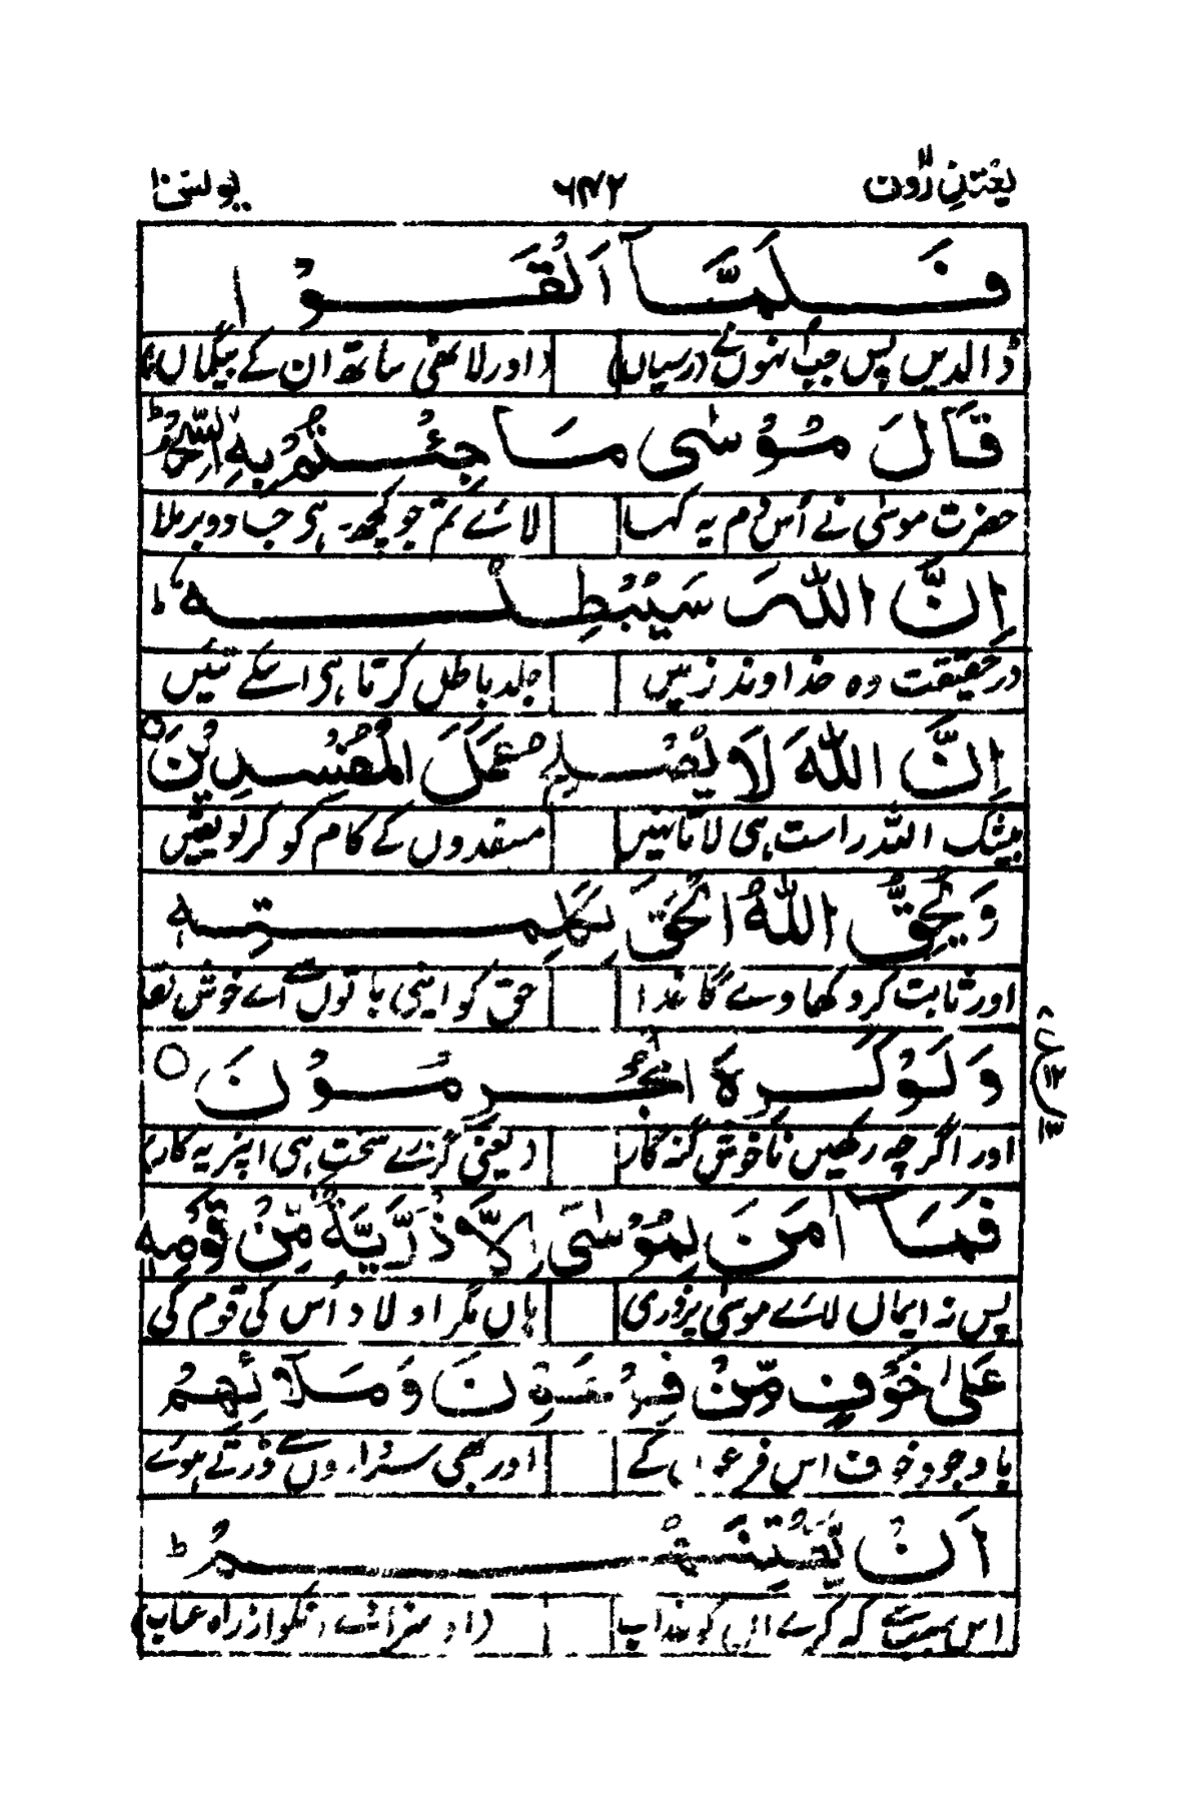 یعتذرون ۱۱ ۶۴۲ یونس ۱۰
فَلَمَّآ اَلْقَوْا
ڈالدیں پس جب انہوں نے درمیاں) (اور لاٹھی ساتھ ان کے بیگماں)
قَالَ مُوْسٰى مَا جِئْتُمْ بِهِ السِّحْرُ ؕ
حضرت موسٰی نے اُس دم یہ کہا لائے تم جو کچھ یہ ہی جادو برملا
اِنَّ اللّٰهَ سَيُبْطِلُهٗ ؕ
درحقیقت وہ خداوند زمیں جلد باطل کرتا ہی اسکے تئیں
اِنَّ اللّٰهَ لَا يُصْلِحُ عَمَلَ الْمُفْسِدِيْنَ ○
بیشک اللہ راست ہی لاتا نہیں مفسدوں کے کام کو کر لو یقیں
وَيُحِقُّ اللّٰهُ الْحَقَّ بِكَلِمٰتِهٖ
اور ثابت کر دکھاوے گا خدا حق کو اپنی باتوں سے اے خوش لقا
وَلَوْ كَرِهَ الْمُجْرِمُوْنَ ○
اور اگرچہ رکھیں ناخوش گنہ گار (یعنی گزرے سخت ہی اپنر یہ کار)
فَمَآ اٰمَنَ لِمُوْسٰۤى اِلَّا ذُرِّيَّةٌ مِّنْ قَوْمِهٖ
پس نہ ایماں لائے موسٰی پر وری ہاں مگر اولاد اُس کی قوم کی
عَلٰى خَوْفٍ مِّنْ فِرْعَوْنَ وَمَلَا۟ئِهِمْ
باوجود خوف اس فرعون کے اور بھی سرداروں سے ڈرتے ہوے
اَنْ يَّفْتِنَهُمْ ؕ
اس سے کہ کرے ان کو عذاب (اور از راہ عتاب)